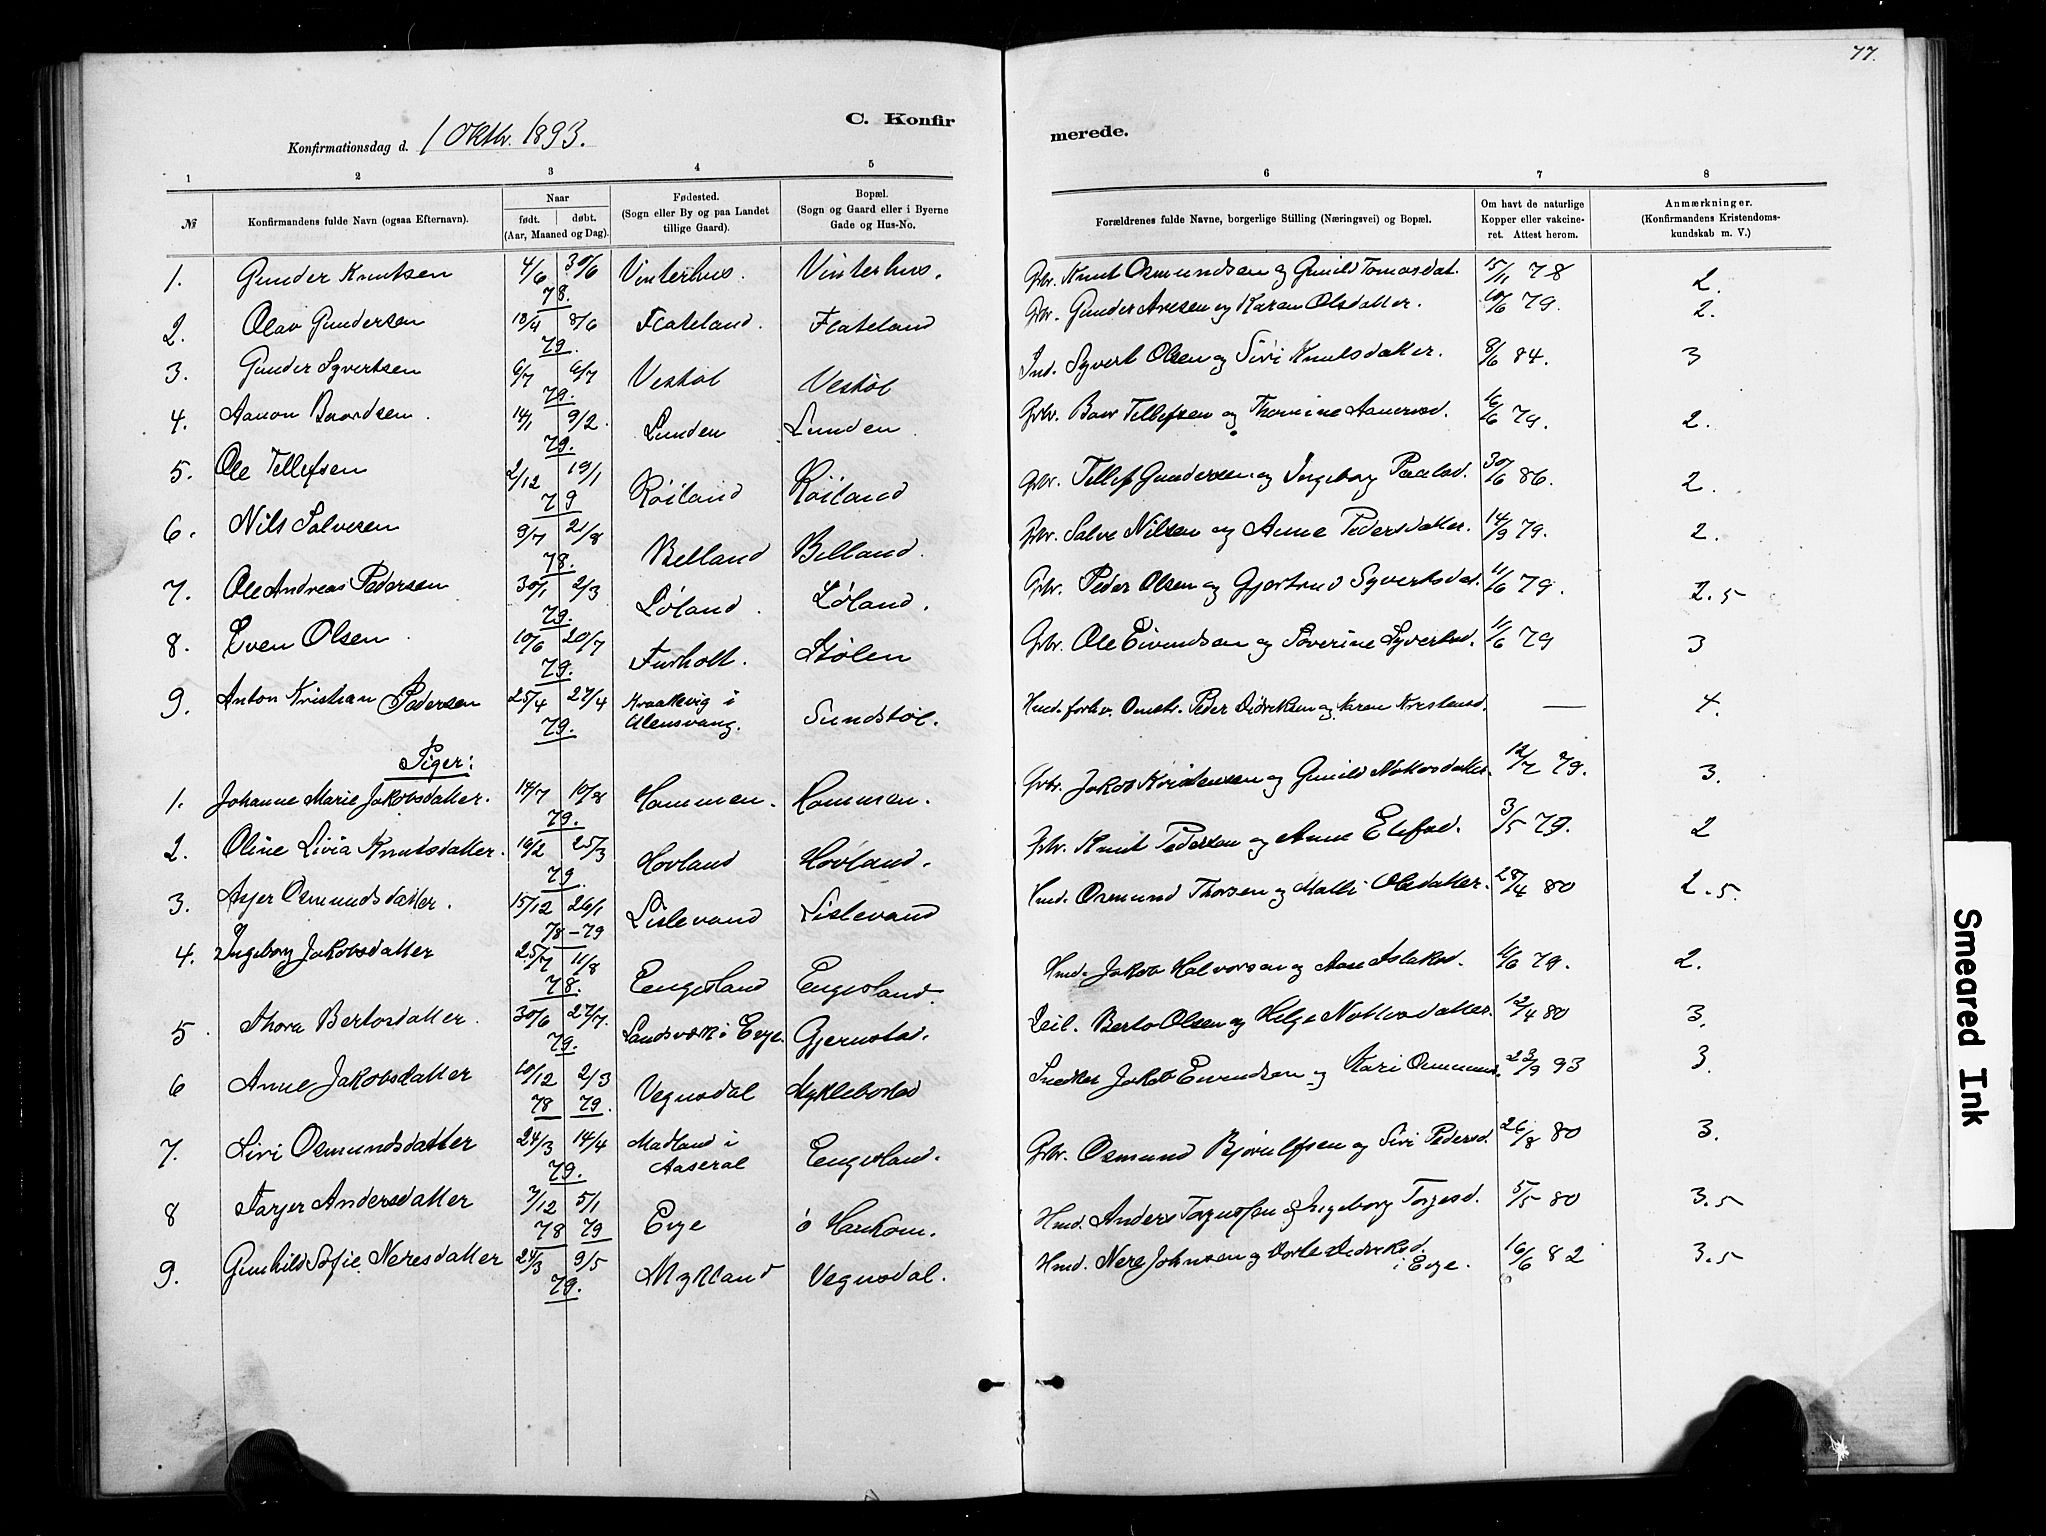 77.
C. Konfirmerede.
Konfirmationsdag d. 1 Oktbr. 1893.
1 2 3 4 5 6 7 8
№ Konfirmandens fulde Navn (ogsaa Efternavn). Naar født. døbt. (Aar, Maaned og Dag). Fødested. (Sogn eller By og paa Landet tillige Gaard). Bopæl. (Sogn og Gaard eller i Byerne Gade og Hus-No. Forældrenes fulde Navne, borgerlige Stilling (Næringsvei) og Bopæl. Om havt de naturlige Kopper eller vakcineret. Attest herom. Anmærkninger. (Konfirmandens Kristendomskundskab m. V.)
1. Gunder Knutsen 4/6 30/6 78. Vinterhus. Vinterhus. Gbr. Knut Osmundsen og Gunild Tomasdat. 15/11 78 2.
2. Olav Gundersen 18/4 8/6 79. Flateland. Flateland Gbr. Gunder Aresen og Karen Olsdatter. 10/6 79. 2.
3. Gunder Syvertsen 6/7 6/7 79. Vestøl Vestøl Ind. Syvert Olsen og Siri Knutsdatter. 8/6 84. 3
4. Aanon Baardsen. 14/1 9/2. 79. Lunden Lunden Gbr. Baar Tellefsen og Thomine Aanensd. 16/6 79. 2.
5. Ole Tellefsen 2/12 19/1 79 Røiland Røiland Gbr. Tellef Gundersen og Ingeborg Paalsd. 30/6 86. 2.
6. Nils Salvesen 9/7 21/8 78. Belland Billand. Gbr. Salve Nilsen og Anne Pedersdatter. 14/9 79. 2.
7. Ole Andreas Pedersen 30/1 2/3 79. Løland. Løland. Gbr. Peder Olsen og Gjertrud Syvertsdat. 11/6 79. 2.5
8. Even Olsen 10/6 20/7 79. Furholt. Stølen Gbr. Ole Eivindsen og Severine Syvertsd. 11/6 79 3
9. Anton Kristian Pedersen 25/4 27/4 79. Kraakevig i Ulensvang. Sundstøl. Hmd. forhv. Omstr. Peder Didriksen og Karen Kristensd. — 4.
Piger:
1. Johanne Marie Jakobsdatter. 14/7 10/8 79. Hommen. Hommen. Gbr. Jakob Kristensen og Gunild Nottosdatter. 12/7 79. 3.
2. Oline Livia Knutsdatter. 16/2 25/3 79. Hovland Hovland. Gbr. Knut Pedersen og Anne Elefsd. 3/5 79. 2
3. Asjer Osmundsdatter. 15/12 26/1 78-79 Lislevand Lislevand Hmd. Osmund Thorsen og Malli Olsdatter. 28/4 80 2.5.
4. Ingeborg Jakobsdatter 25/7 11/8 78. Eengesland Engesland. Hmd. Jakob Halvorsen og Aase Aslaksd. 11/6 79. 2.
5. Thora Bertosdatter. 30/6 27/7. 79. Landsværk i Evje. Gjerustad. Leil. Berto Olsen og Helje Nottosdatter. 12/4 80 3.
6 Anne Jakobsdatter 10/12 2/3 78 79. Vegusdal Myklebostad Snedker Jakob Eivindsen og Kari Osmunds. 23/9 93 3.
7. Livi Osmundsdatter 24/3 14/4 79. Madland i Aaseral Eengesland. Gbr. Osmund Bjørulfsen og Siri Pedersd. 26/8 80 3.
8 Tarjer Andersdatter 7/12 5/1 78 79 Evje ö Haukom. Hmd. Anders Torjussen og Ingeborg Torjesd. 5/5 80 3.5
9. Gunhild Sofie Neresdatter 24/3 9/5 79. Mykland Vegusdal. Hmd. Nere Johnsen og Dorte Didriksd. i Evje. 16/6 82 3.5
Smeared Ink